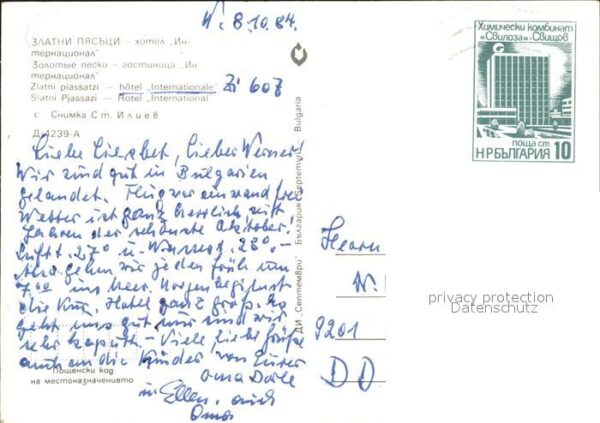 W. 8.10.84.
ЗЛАТНИ ПЯСЪЦИ – хотел „Ин-
тернационал"
Золотые пески – гостиница „Ин-
тернационал"
Zlatni piassatzi – hôtel „Internationale" Zi 608
Slatni Pjassazi – Hotel „International"
с Снимка Ст. Илиев
Д-4239-А
Liebe Liesbet, lieber Werner!
Wir sind gut in Bulgarien
gelandet. Flug war einwandfrei
Wetter ist ganz herrlich, seit
Jahren der schönste Oktober.
Luft 27° u. Wasser 23°.–
Also gehen wir jeden früh um
7°° ins Meer. Morgen beginnt
die Kur. Hotel ganz groß. Es
geht uns gut nur sind wir
sehr kaputt – Viele liebe Grüße
auch an die Kinder von Eurer
Oma
Ellen, auch
Oma
Пощенски код
на местоназначението
ДИ „Септември" България "Septemvri" Bulgaria
Химически комбинат
«Свилоза»-Свищов
поща ст
НРБЪЛГАРИЯ 10
Herrn
W.
9201
DD
privacy protection
Datenschutz